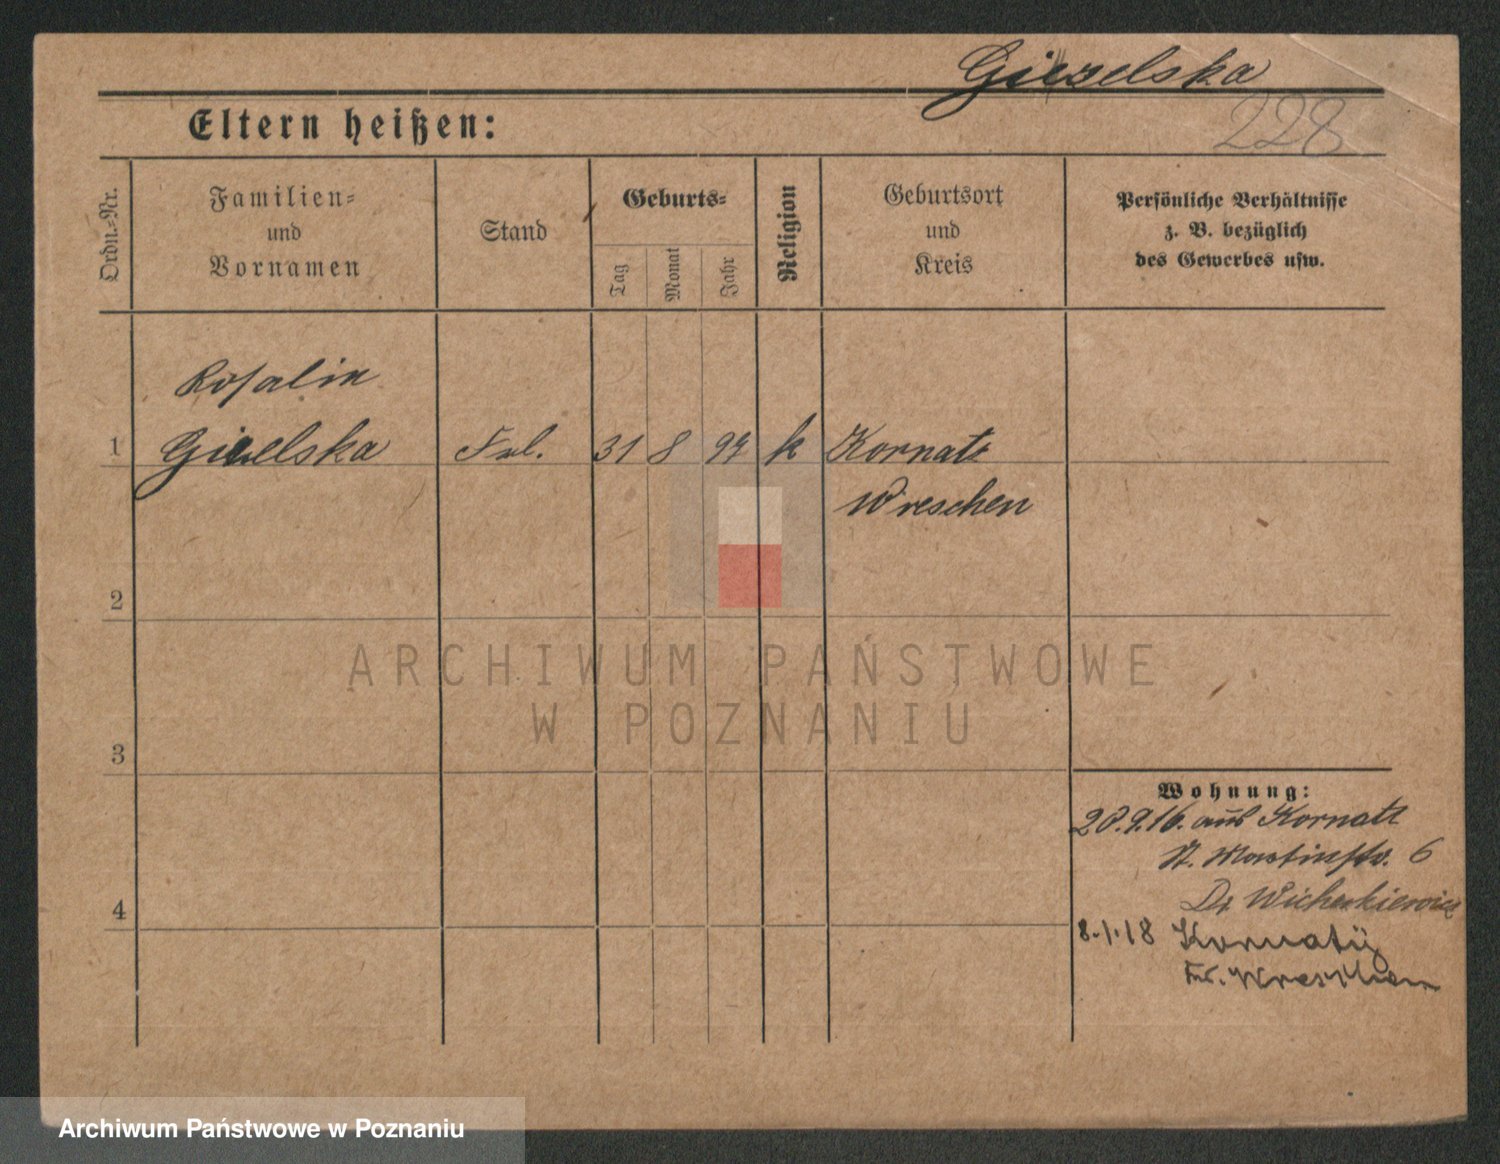 Giezelska
228
Eltern heißen:
Ordn.-Nr.
Familien-
und
Vornamen
Stand
Geburts-
Tag
Monat
Jahr
Religion
Geburtsort
und
Kreis
Persönliche Verhältnisse
z. B. bezüglich
des Gewerbes usw.
Rosalin
1 Giezelska Frl. 31 8 94 k Kornatz
Wreschen
2
ARCHIWUM PAŃSTWOWE
W POZNANIU
3
Wohnung:
28.9.16. aus Kornatz
St. Martinstr. 6
Dr Wicherkiewicz
4
8.1.18 Kornaty
Kr. Wreschen
Archiwum Państwowe w Poznaniu